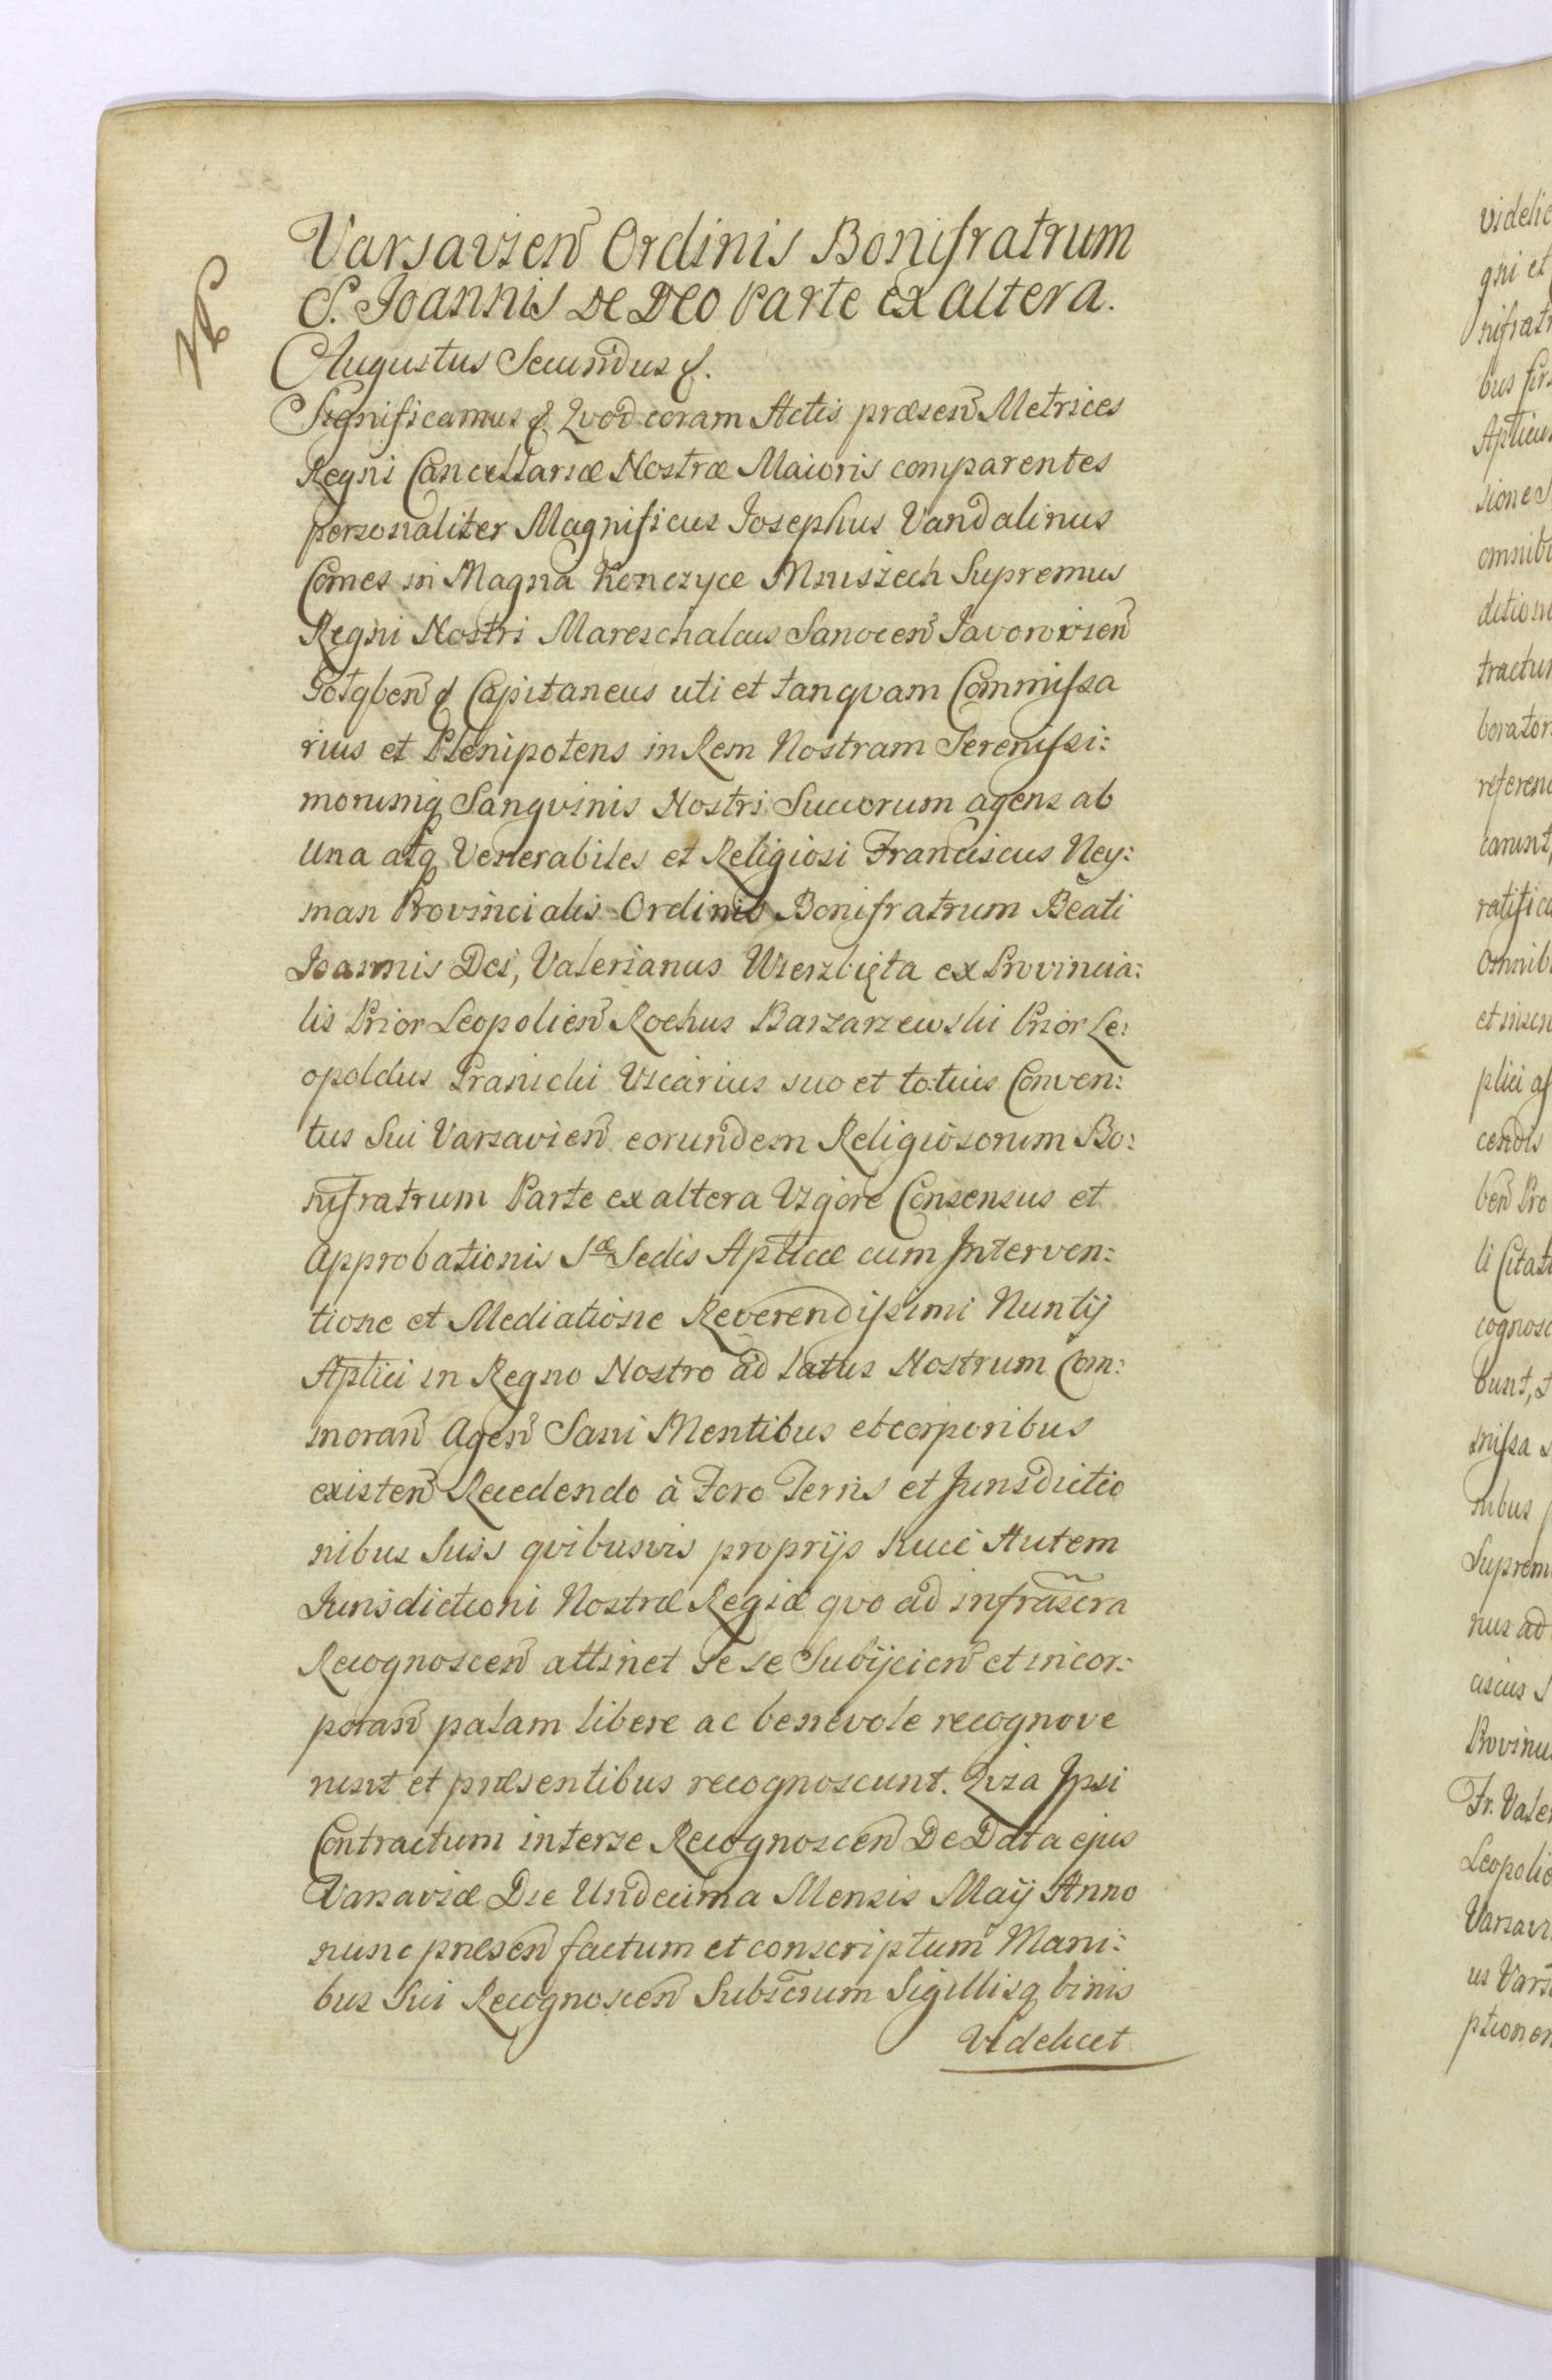 Varsavien Ordinis Bonifratrum
S. Joannis De Deo Parte ex altera.
Augustus Secundus &.
Significamus & Qvod coram Actis præsen Metrices
Regni Cancellariæ Nostræ Maioris comparentes
personaliter Magnificus Josephus Vandalinus
Comes in Magna Konczyce Mniszech Supremus
Regni Nostri Mareschalcus Sanocen Javorovien
Golqben & Capitaneus uti et tanqvam Commissa
rius et Plenipotens in Rem Nostram Serenissi:
morumq Sangvinis Nostri Succorum agens ab
Una atq Venerabiles et Religiosi Franciscus Ney:
man Provincialis Ordinis Bonifratrum Beati
Joannis Dei, Valerianus Wierzbięta ex Provincia:
lis Prior Leopolien Rochus Barzarzewski Prior Le:
opoldus Pranichi Vicarius suo et totius Conven:
tus Sui Varsavien eorundem Religiosorum Bo:
nifratrum Parte ex altera Vigore Consensus et
Approbationis Sæ Sedis Aplicæ cum Interven:
tione et Mediatione Reverendissimi Nuntij
Aplici in Regno Nostro ad latus Nostrum Com:
moran Agen Sani Mentibus et corporibus
existen Recedendo à Foro Terris et Jurisdictio
nibus Suis qvibusvis proprijs huic Autem
Jurisdictioni Nostræ Regiæ qvo ad infrascra
Recognoscen attinet se se Subijcien et incor:
poran palam libere ac benevole recognove
runt et præsentibus recognoscunt. Qvia Ipsi
Contractum inter se Recognoscen De Data ejus
Varsaviæ Die Undecima Mensis Maij Anno
nunc præsen factum et conscriptum Mani:
bus Sui Recognoscen Subscrum Sigillisq binis
Videlicet
videlic
gni et
nifratr
bus
Aplicu
sione
omnibu
ditioni
tractum
borator
referen
carunt,
ratifica
Omnib
et inser
plici
cendis
ben Pro
li Citati
cognosc
bunt,
missa
nibus
Suprem
nus ad
ciscus
Provinc
Fr. Valer
Leopolie
Varsavi
us Vars
ptionem